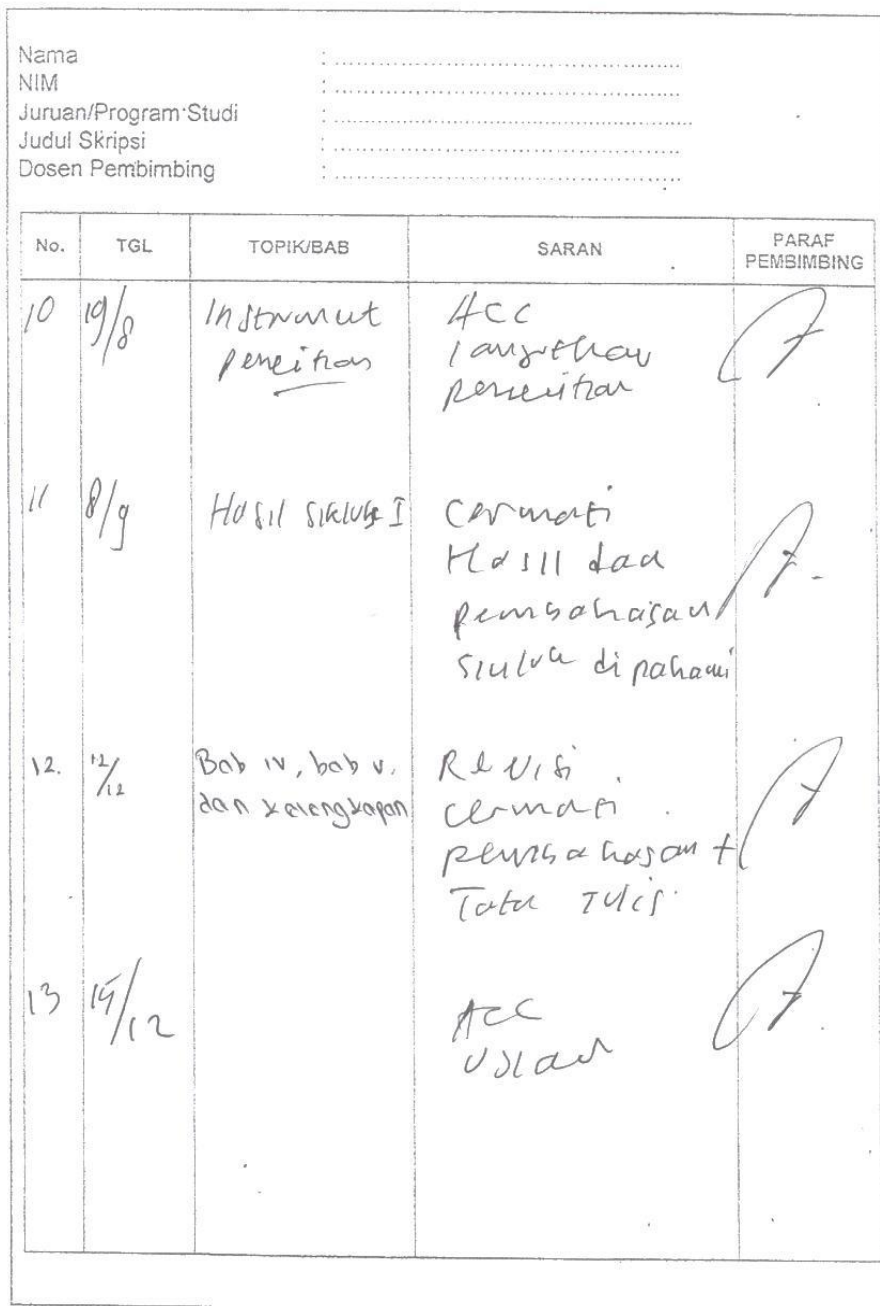 Nama : ......................................................
NIM : ......................................................
Juruan/Program Studi : ......................................................
Judul Skripsi : ......................................................
Dosen Pembimbing : ......................................................
No. TGL TOPIK/BAB SARAN PARAF
PEMBIMBING
10 19/8 Instrumut ACC
peneitian
penelitian
11 8/9 Hasil siklus I Cermati
Hasil dan
pembahasan
dipahami
12. 12/12 Bab IV, bab V. Revisi
dan kelengkapan cermati
pembahasan +
Tata Tulis.
13 15/12 ACC
Ujian